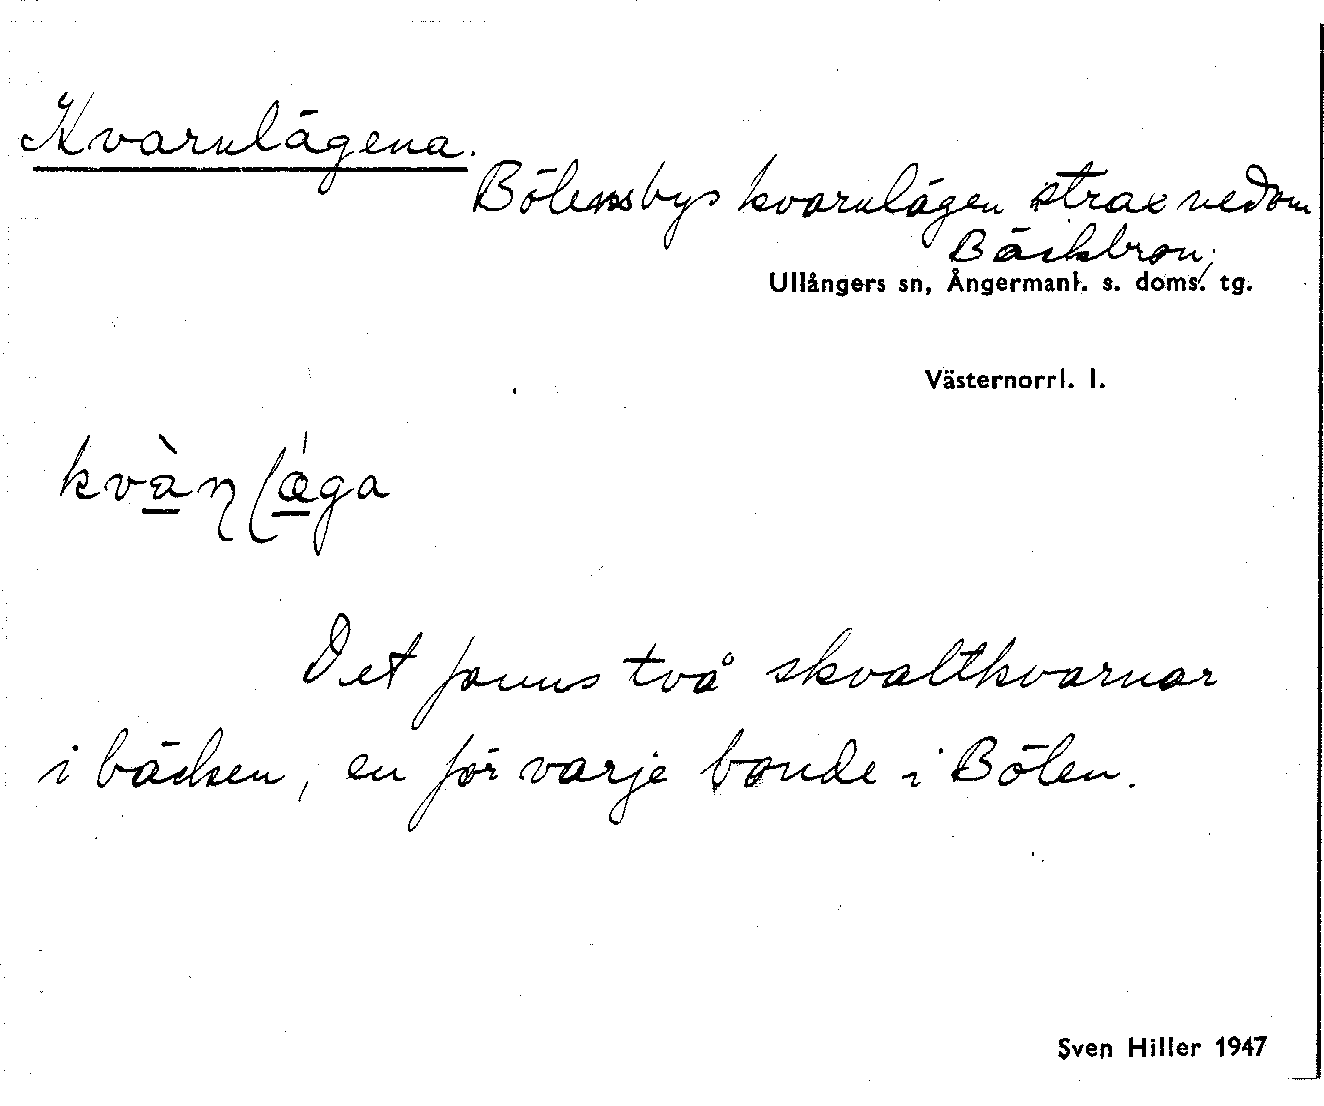 Kvarnlägena.
Bölensbys kvarnlägen strax nedom
Bäckbron,
Ullångers sn, Ångermanl. s. doms. tg.
Västernorrl. l.
Det fanns två skvaltkvarnar
i bäcken, en för varje bonde i Bölen.
Sven Hiller 1947